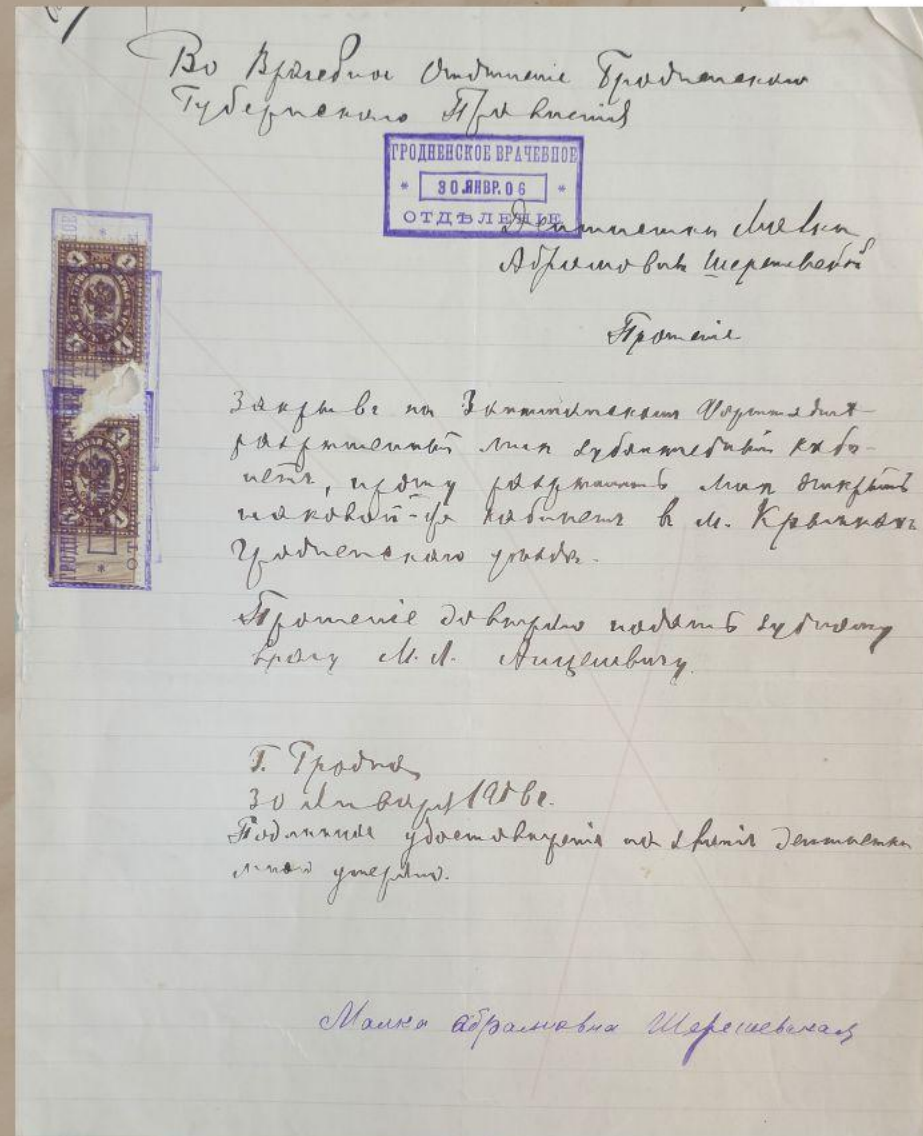 Во Врачебное Отделение Гродненскаго
Губернскаго Правленія
ГРОДНЕНСКОЕ ВРАЧЕБНОЕ
* 30 ЯНВР. 06 *
ОТДѢЛЕНІЕ
Дантистки Малки
Абрамовны Шерешевской
Прошеніе
Закрывъ на
разрѣшенный мнѣ зуболечебный каби-
нетъ, прошу разрѣшить мнѣ открыть
таковой-же кабинетъ в м. Крынкахъ
Гродненскаго уѣзда.
Прошеніе довѣряю подать зубному
врачу М. Л.
Г. Гродна
30 Января 1906 г.
Подлинное удостовѣреніе на званіе дантистки
мною утеряно.
Малка Абрамовна Шерешевская